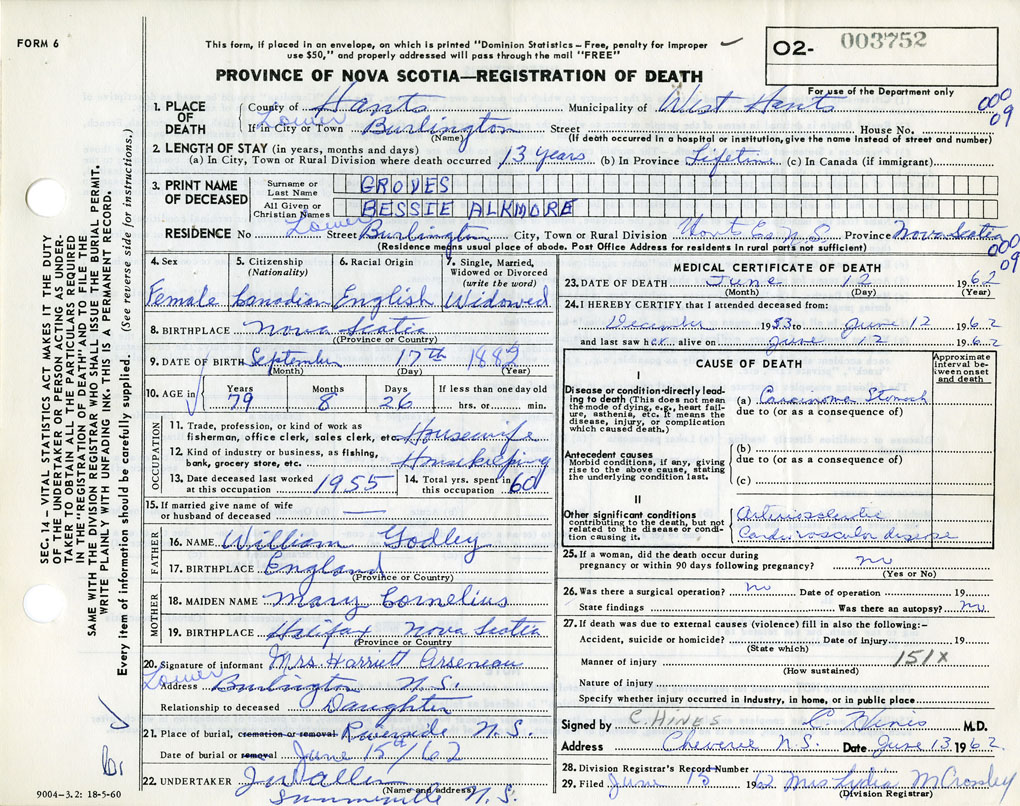 FORM 6
This form, if placed in an envelope, on which is printed "Dominion Statistics – Free, penalty for improper
use $50," and properly addressed will pass through the mail "FREE"
O2- 003752
For use of the Department only
PROVINCE OF NOVA SCOTIA—REGISTRATION OF DEATH
000
09
1. PLACE OF DEATH
County of Hants Municipality of West Hants
If in City or Town Lower Burlington Street House No.
(Name) (If death occurred in a hospital or institution, give the name instead of street and number)
2. LENGTH OF STAY (in years, months and days)
(a) In City, Town or Rural Division where death occurred 13 years (b) In Province Lifetime (c) In Canada (if immigrant)
3. PRINT NAME OF DECEASED
Surname or Last Name GROVES
All Given or Christian Names BESSIE ALKMORE
RESIDENCE No Street Lower Burlington City, Town or Rural Division Hants Co N.S. Province Nova Scotia
(Residence means usual place of abode. Post Office Address for residents in rural parts not sufficient)
000
09
4. Sex Female
5. Citizenship (Nationality) Canadian
6. Racial Origin English
7. Single, Married, Widowed or Divorced (write the word) Widowed
8. BIRTHPLACE Nova Scotia
(Province or Country)
9. DATE OF BIRTH September 17th 1882
(Month) (Day) (Year)
10. AGE in Years 79 Months 8 Days 26 If less than one day old hrs. or min.
OCCUPATION
11. Trade, profession, or kind of work as fisherman, office clerk, sales clerk, etc. Housewife
12. Kind of industry or business, as fishing, bank, grocery store, etc. Housekeeping
13. Date deceased last worked at this occupation 1955
14. Total yrs. spent in this occupation 60
15. If married give name of wife or husband of deceased —
FATHER
16. NAME William Godley
17. BIRTHPLACE England
(Province or Country)
MOTHER
18. MAIDEN NAME Mary Cornelius
19. BIRTHPLACE Halifax Nova Scotia
(Province or Country)
20. Signature of informant Mrs. Harriett Arseneau
Address Lower Burlington N.S.
Relationship to deceased Daughter
21. Place of burial, cremation or removal Riverside N.S.
Date of burial or removal June 15th/62
22. UNDERTAKER J W Allen
(Name and address)
Summerville N.S.
MEDICAL CERTIFICATE OF DEATH
23. DATE OF DEATH June 12 1962
(Month) (Day) (Year)
24. I HEREBY CERTIFY that I attended deceased from:
December 1953 to June 12 1962
and last saw her alive on June 12 1962
CAUSE OF DEATH
Approximate interval between onset and death
I
Disease or condition directly leading to death (This does not mean the mode of dying, e.g., heart failure, asthenia, etc. It means the disease, injury, or complication which caused death.)
(a) Carcinoma Stomach
due to (or as a consequence of)
Antecedent causes
Morbid conditions, if any, giving rise to the above cause, stating the underlying condition last.
(b)
due to (or as a consequence of)
(c)
II
Other significant conditions contributing to the death, but not related to the disease or condition causing it.
Arteriosclerotic
Cardiovascular disease
25. If a woman, did the death occur during pregnancy or within 90 days following pregnancy? no
(Yes or No)
26. Was there a surgical operation? no Date of operation 19
State findings Was there an autopsy? no
27. If death was due to external causes (violence) fill in also the following:-
Accident, suicide or homicide? Date of injury 19
(State which)
Manner of injury 151X
(How sustained)
Nature of injury
Specify whether injury occurred in industry, in home, or in public place
Signed by C. HINES C. Hines M.D.
Address Cheverie N.S. Date June 13 1962
28. Division Registrar's Record Number
29. Filed June 15 1962 Mrs Lydia McCrossley
(Division Registrar)
SEC. 14 – VITAL STATISTICS ACT MAKES IT THE DUTY
OF THE UNDERTAKER OR PERSON ACTING AS UNDERTAKER
TO OBTAIN ALL THE PARTICULARS REQUIRED
IN THE "REGISTRATION OF DEATH" AND TO FILE THE
SAME WITH THE DIVISION REGISTRAR WHO SHALL ISSUE THE BURIAL PERMIT.
WRITE PLAINLY WITH UNFADING INK. THIS IS A PERMANENT RECORD.
Every item of information should be carefully supplied. (See reverse side for instructions.)
9004-3.2: 18-5-60